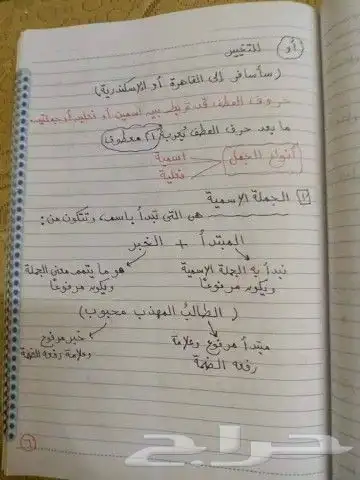 أو للتخيير
(سأسافر إلى القاهرة أو الإسكندرية)
حروف العطف قد تربط بين اسمين أو فعلين أو جملتين
ما بعد حرف العطف يُعرب (معطوف)
أنواع الجمل
اسمية
فعلية
١ الجملة الإسمية
هي التي تبدأ باسم، وتتكون من:
المبتدأ + الخبر
نبدأ به الجملة الإسمية
ويكون مرفوعًا
هو ما يتمم معنى الجملة
ويكون مرفوعًا
(الطالبُ المهذب محبوب)
مبتدأ مرفوع وعلامة
رفعه الضمة
خبر مرفوع
وعلامة رفعه الضمة
٦
حراج